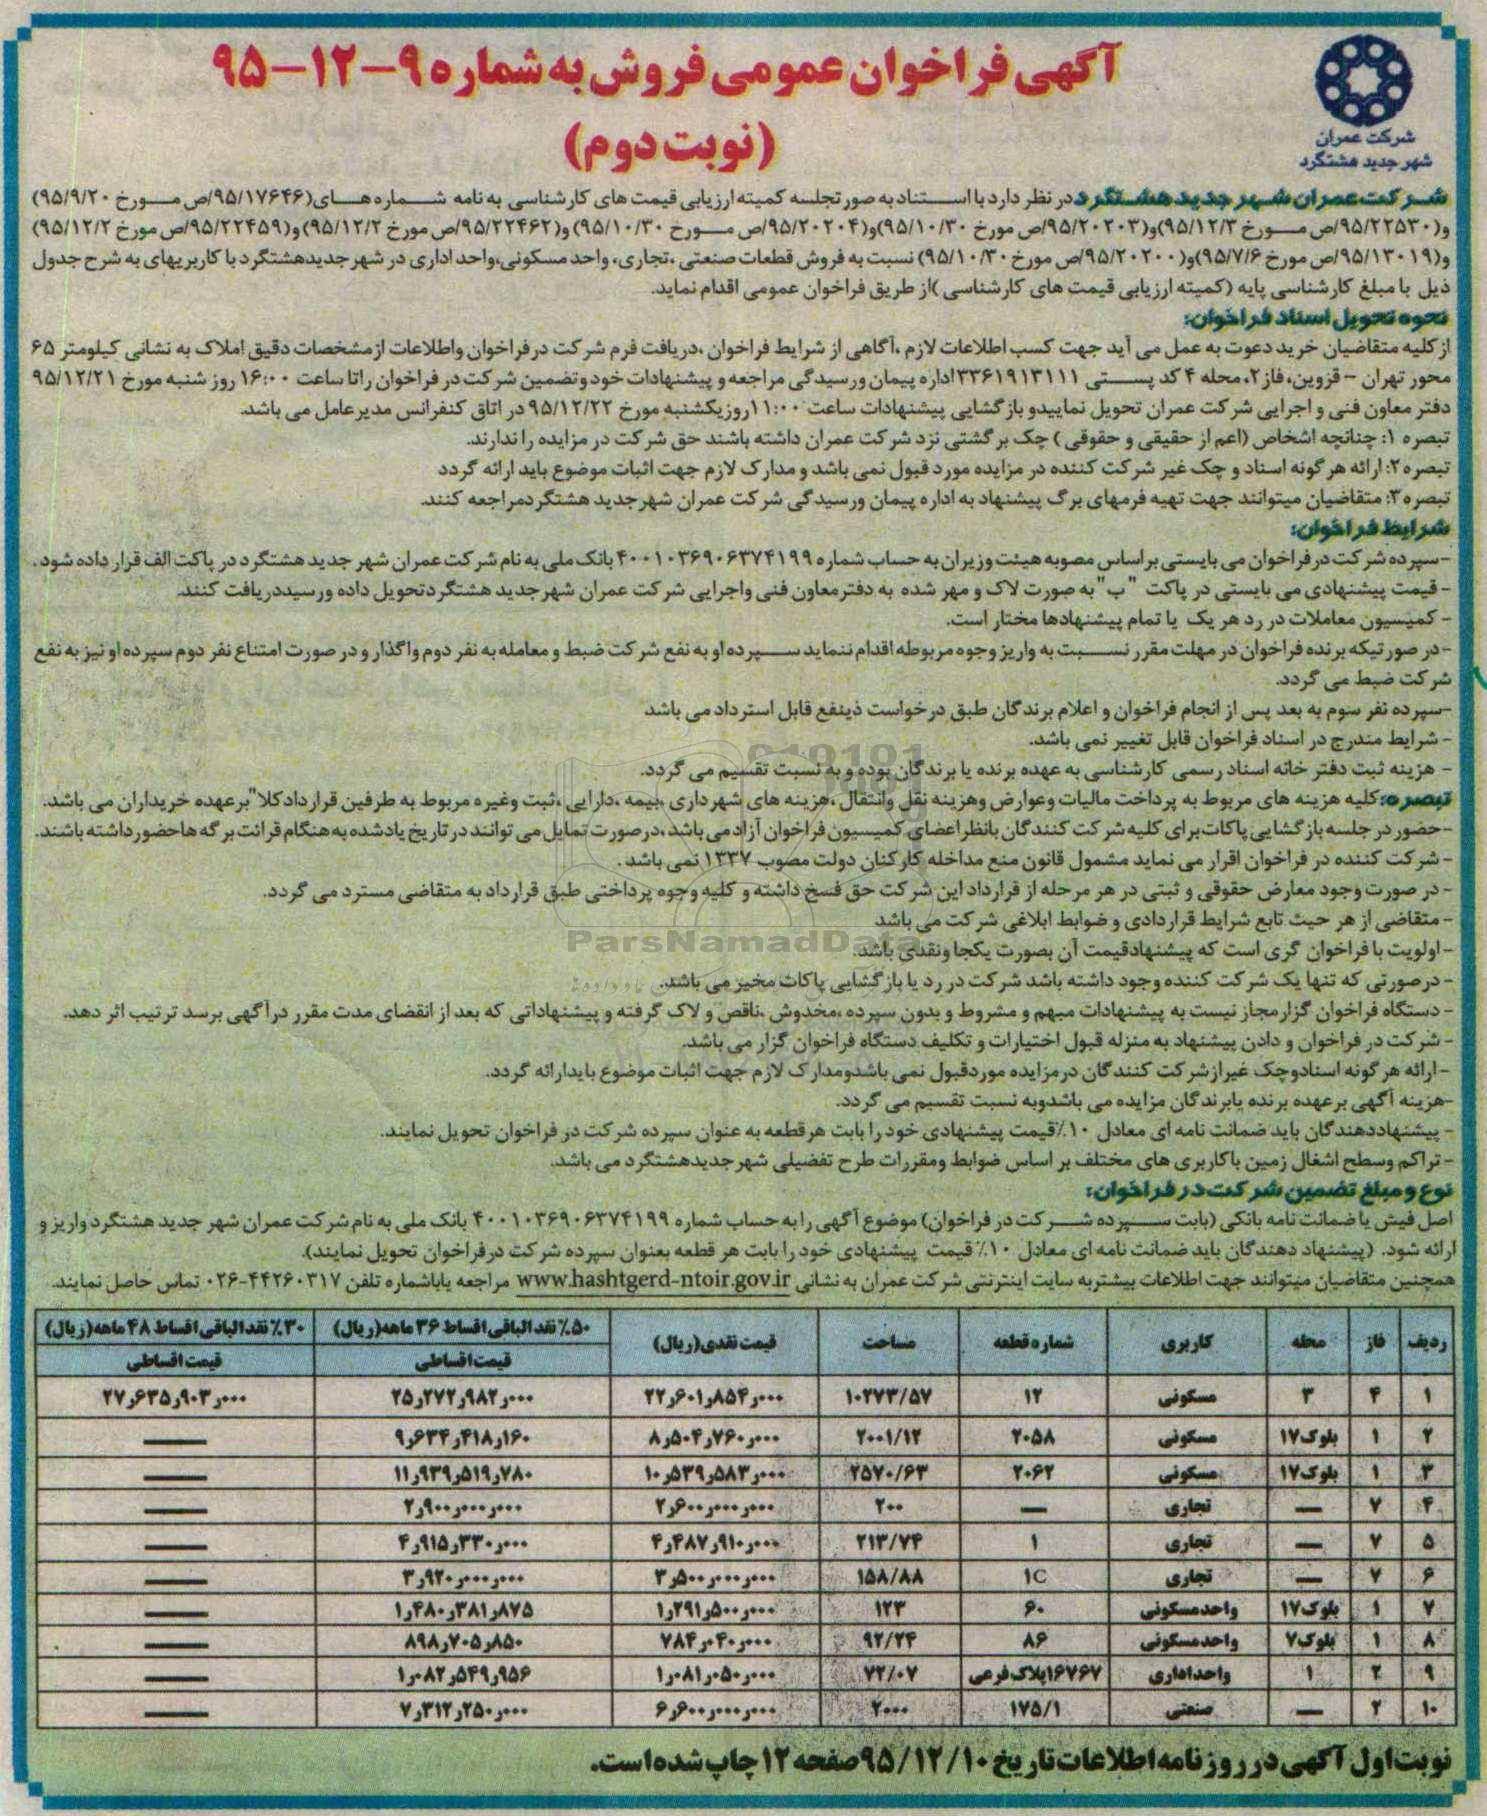 آگهی فراخوان عمومی فروش به شماره ۹-۱۲-۹۵
(نوبت دوم)
شرکت عمران
شهر جدید هشتگرد
شرکت عمران شهر جدید هشتگرد در نظر دارد با استناد به صورتجلسه کمیته ارزیابی قیمت های کارشناسی به نامه شماره های (۹۵/۱۷۶۴۶/ص مورخ ۹۵/۹/۲۰)
و(۹۵/۲۲۵۳۰/ص مورخ ۹۵/۱۲/۳)و(۹۵/۲۰۲۰۳/ص مورخ ۹۵/۱۰/۳۰)و(۹۵/۲۰۲۰۴/ص مورخ ۹۵/۱۰/۳۰) و(۹۵/۲۲۴۶۲/ص مورخ ۹۵/۱۲/۲) و(۹۵/۲۲۴۵۹/ص مورخ ۹۵/۱۲/۲)
و(۹۵/۱۳۰۱۹/ص مورخ ۹۵/۷/۶)و(۹۵/۲۰۲۰۰/ص مورخ ۹۵/۱۰/۳۰) نسبت به فروش قطعات صنعتی ،تجاری، واحد مسکونی،واحد اداری در شهر جدیدهشتگرد با کاربریهای به شرح جدول
ذیل با مبلغ کارشناسی پایه (کمیته ارزیابی قیمت های کارشناسی )از طریق فراخوان عمومی اقدام نماید.
نحوه تحویل اسناد فراخوان:
از کلیه متقاضیان خرید دعوت به عمل می آید جهت کسب اطلاعات لازم ،آگاهی از شرایط فراخوان ،دریافت فرم شرکت در فراخوان واطلاعات از مشخصات دقیق املاک به نشانی کیلومتر ۶۵
محور تهران – قزوین، فاز ۲، محله ۴ کد پستی ۳۳۶۱۹۱۳۱۱۱ اداره پیمان ورسیدگی مراجعه و پیشنهادات خود وتضمین شرکت در فراخوان راتا ساعت ۱۶:۰۰ روز شنبه مورخ ۹۵/۱۲/۲۱
دفتر معاون فنی و اجرایی شرکت عمران تحویل نماییدو بازگشایی پیشنهادات ساعت ۱۱:۰۰روزیکشنبه مورخ ۹۵/۱۲/۲۲ در اتاق کنفرانس مدیرعامل می باشد.
تبصره ۱: چنانچه اشخاص (اعم از حقیقی و حقوقی ) چک برگشتی نزد شرکت عمران داشته باشند حق شرکت در مزایده را ندارند.
تبصره ۲: ارائه هرگونه اسناد و چک غیر شرکت کننده در مزایده مورد قبول نمی باشد و مدارک لازم جهت اثبات موضوع باید ارائه گردد
تبصره ۳: متقاضیان میتوانند جهت تهیه فرمهای برگ پیشنهاد به اداره پیمان ورسیدگی شرکت عمران شهرجدید هشتگردمراجعه کنند.
شرایط فراخوان:
-سپرده شرکت درفراخوان می بایستی براساس مصوبه هیئت وزیران به حساب شماره ۴۰۰۱۰۳۶۹۰۶۳۷۴۱۹۹ بانک ملی به نام شرکت عمران شهر جدید هشتگرد در پاکت الف قرار داده شود .
- قیمت پیشنهادی می بایستی در پاکت "ب" به صورت لاک و مهر شده به دفترمعاون فنی واجرایی شرکت عمران شهرجدید هشتگردتحویل داده ورسیددریافت کنند.
- کمیسیون معاملات در رد هر یک یا تمام پیشنهادها مختار است.
-در صورتیکه برنده فراخوان در مهلت مقرر نسبت به واریز وجوه مربوطه اقدام ننماید سپرده او به نفع شرکت ضبط و معامله به نفر دوم واگذار و در صورت امتناع نفر دوم سپرده او نیز به نفع
شرکت ضبط می گردد.
-سپرده نفر سوم به بعد پس از انجام فراخوان و اعلام برندگان طبق درخواست ذینفع قابل استرداد می باشد
- شرایط مندرج در اسناد فراخوان قابل تغییر نمی باشد.
- هزینه ثبت دفتر خانه اسناد رسمی کارشناسی به عهده برنده یا برندگان بوده و به نسبت تقسیم می گردد.
تبصره:کلیه هزینه های مربوط به پرداخت مالیات وعوارض وهزینه نقل وانتقال ،هزینه های شهرداری ،بیمه ،دارایی ،ثبت وغیره مربوط به طرفین قراردادکلا"برعهده خریداران می باشد.
-حضور در جلسه بازگشایی پاکات برای کلیه شرکت کنندگان بانظر اعضای کمیسیون فراخوان آزاد می باشد ،درصورت تمایل می توانند در تاریخ یادشده به هنگام قرائت برگه ها حضور داشته باشند.
- شرکت کننده در فراخوان اقرار می نماید مشمول قانون منع مداخله کارکنان دولت مصوب ۱۳۳۷ نمی باشد .
- در صورت وجود معارض حقوقی و ثبتی در هر مرحله از قرارداد این شرکت حق فسخ داشته و کلیه وجوه پرداختی طبق قرارداد به متقاضی مسترد می گردد.
- متقاضی از هر حیث تابع شرایط قراردادی و ضوابط ابلاغی شرکت می باشد
-اولویت با فراخوان گری است که پیشنهادقیمت آن بصورت یکجا ونقدی باشد.
- درصورتی که تنها یک شرکت کننده وجود داشته باشد شرکت در رد یا بازگشایی پاکات مخیر می باشد.
- دستگاه فراخوان گزار مجاز نیست به پیشنهادات مبهم و مشروط و بدون سپرده ،مخدوش ،ناقص و لاک گرفته و پیشنهاداتی که بعد از انقضای مدت مقرر درآگهی برسد ترتیب اثر دهد.
- شرکت در فراخوان و دادن پیشنهاد به منزله قبول اختیارات و تکلیف دستگاه فراخوان گزار می باشد.
-ارائه هرگونه اسنادوچک غیرازشرکت کنندگان درمزایده موردقبول نمی باشدومدارک لازم جهت اثبات موضوع بایدارائه گردد.
-هزینه آگهی برعهده برنده یابرندگان مزایده می باشدوبه نسبت تقسیم می گردد.
- پیشنهاددهندگان باید ضمانت نامه ای معادل ۱۰٪قیمت پیشنهادی خود را بابت هرقطعه به عنوان سپرده شرکت در فراخوان تحویل نمایند.
- تراکم وسطح اشغال زمین باکاربری های مختلف بر اساس ضوابط ومقررات طرح تفضیلی شهرجدیدهشتگرد می باشد.
نوع و مبلغ تضمین شرکت در فراخوان:
اصل فیش یا ضمانت نامه بانکی (بابت سپرده شرکت در فراخوان) موضوع آگهی را به حساب شماره ۴۰۰۱۰۳۶۹۰۶۳۷۴۱۹۹ بانک ملی به نام شرکت عمران شهر جدید هشتگرد واریز و
ارائه شود. (پیشنهاد دهندگان باید ضمانت نامه ای معادل ۱۰٪ قیمت پیشنهادی خود را بابت هر قطعه بعنوان سپرده شرکت درفراخوان تحویل نمایند).
همچنین متقاضیان میتوانند جهت اطلاعات بیشتربه سایت اینترنتی شرکت عمران به نشانی www.hashtgerd-ntoir.gov.ir مراجعه یاباشماره تلفن ۰۲۶-۴۴۲۶۰۳۱۷ تماس حاصل نمایند.
ردیف فاز محله کاربری شماره قطعه مساحت قیمت نقدی(ریال) ۵۰٪ نقد الباقی اقساط ۳۶ ماهه(ریال) ۳۰٪ نقد الباقی اقساط ۴۸ ماهه(ریال)
قیمت اقساطی قیمت اقساطی
۱ ۴ ۳ مسکونی ۱۲ ۱۰۲۷۳/۵۷ ۲۲,۶۰۱,۸۵۴,۰۰۰ ۲۵,۲۷۲,۹۸۲,۰۰۰ ۲۷,۶۳۵,۹۰۳,۰۰۰
۲ ۱ بلوک۱۷ مسکونی ۲۰۵۸ ۲۰۰۱/۱۲ ۸,۵۰۴,۷۶۰,۰۰۰ ۹,۶۳۴,۴۱۸,۱۶۰ —
۳ ۱ بلوک۱۷ مسکونی ۲۰۶۲ ۲۵۷۰/۶۳ ۱۰,۵۳۹,۵۸۳,۰۰۰ ۱۱,۹۳۹,۵۱۹,۷۸۰ —
۴ ۷ — تجاری — ۲۰۰ ۲,۶۰۰,۰۰۰,۰۰۰ ۲,۹۰۰,۰۰۰,۰۰۰ —
۵ ۷ — تجاری ۱ ۲۱۳/۷۴ ۴,۴۸۷,۹۱۰,۰۰۰ ۴,۹۱۵,۳۳۰,۰۰۰ —
۶ ۷ — تجاری ۱C ۱۵۸/۸۸ ۳,۵۰۰,۰۰۰,۰۰۰ ۳,۹۲۰,۰۰۰,۰۰۰ —
۷ ۱ بلوک۱۷ واحدمسکونی ۶۰ ۱۲۳ ۱,۲۹۱,۵۰۰,۰۰۰ ۱,۴۸۰,۳۸۱,۸۷۵ —
۸ ۱ بلوک۷ واحدمسکونی ۸۶ ۹۲/۲۴ ۷۸۴,۰۴۰,۰۰۰ ۸۹۸,۷۰۵,۸۵۰ —
۹ ۲ ۱ واحداداری ۱۶۷۶۷پلاک فرعی ۷۲/۰۷ ۱,۰۸۱,۰۵۰,۰۰۰ ۱,۰۸۲,۵۴۹,۹۵۶ —
۱۰ ۲ — صنعتی ۱۷۵/۱ ۲۰۰۰ ۶,۶۰۰,۰۰۰,۰۰۰ ۷,۳۱۲,۲۵۰,۰۰۰ —
نوبت اول آگهی در روزنامه اطلاعات تاریخ ۹۵/۱۲/۱۰ صفحه ۱۲ چاپ شده است.
ParsNamadData